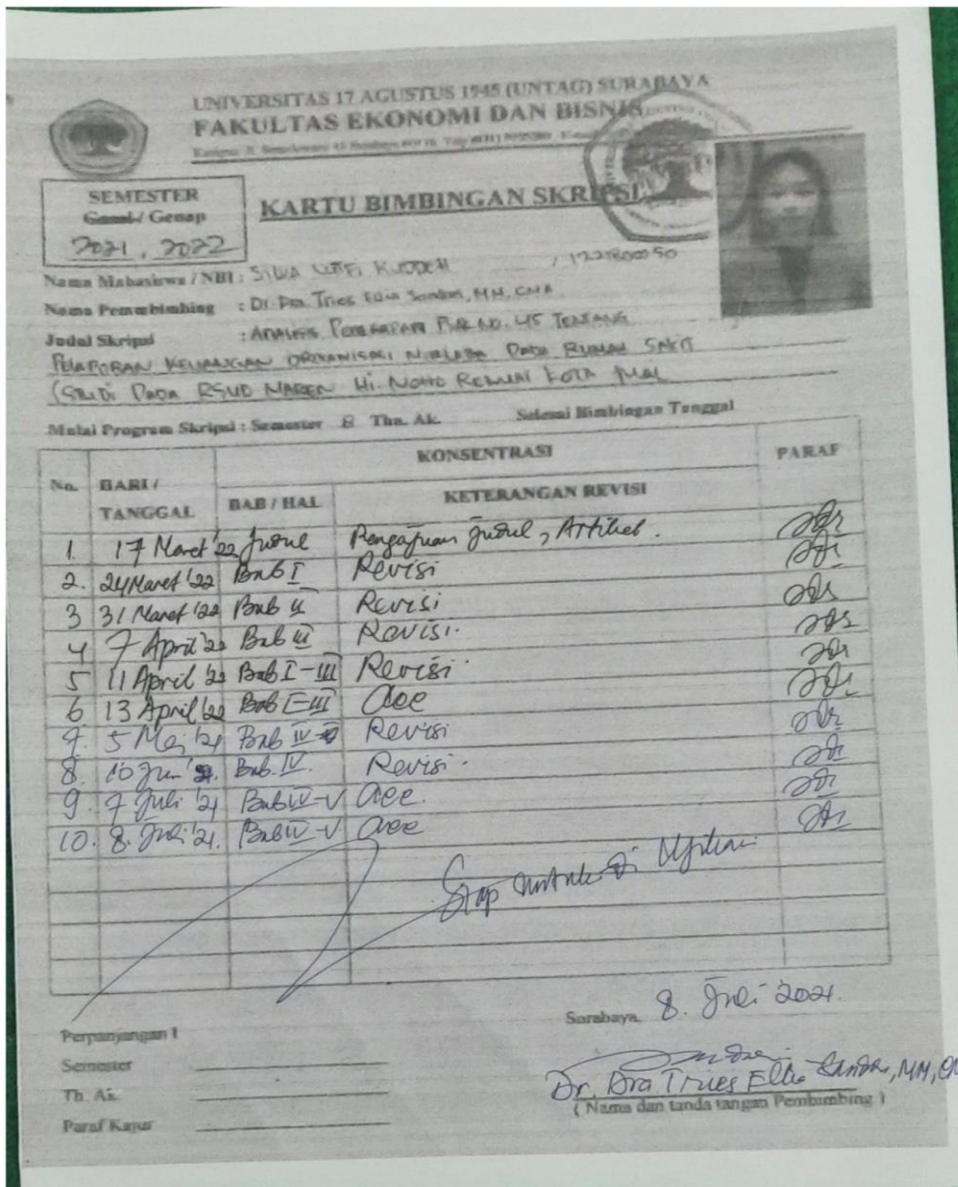 UNIVERSITAS 17 AGUSTUS 1945 (UNTAG) SURABAYA
FAKULTAS EKONOMI DAN BISNIS
SEMESTER
Gasal / Genap
2021, 2022
KARTU BIMBINGAN SKRIPSI
Nama Mahasiswa / NBI :
Nama Pembimbing : Dr. Dra. Tries MM, CMA
Judul Skripsi : ANALISIS NO. 45 TENTANG
PELAPORAN KEUANGAN ORGANISASI NIRLABA PADA RUMAH SAKIT
(STUDI PADA RSUD MAREN HI. NOHO RENUAT KOTA TUAL
Mulai Program Skripsi : Semester 8 Thn. Ak. Selesai Bimbingan Tanggal
No. HARI / TANGGAL KONSENTRASI PARAF
BAB / HAL KETERANGAN REVISI
1. 17 Maret '22 Judul Pengajuan Judul, Artikel.
2. 24 Maret '22 Bab I Revisi
3 31 Maret '22 Bab II Revisi
4 7 April '22 Bab III Revisi.
5 11 April '22 Bab I-III Revisi.
6 13 April '22 Bab I-III acc
7. 5 Mei '21 Bab IV Revisi
8. 10 Jun Bab. IV. Revisi.
9. 7 Juli '21 Bab IV-V acc.
10. 8. Juli '21. Bab IV-V acc
Siap untuk di Ujikan.
Surabaya, 8. Juli 2021.
Perpanjangan I
Semester
Th. Ak.
Paraf Kajur
Dr. Dra Tries MM,
( Nama dan tanda tangan Pembimbing )